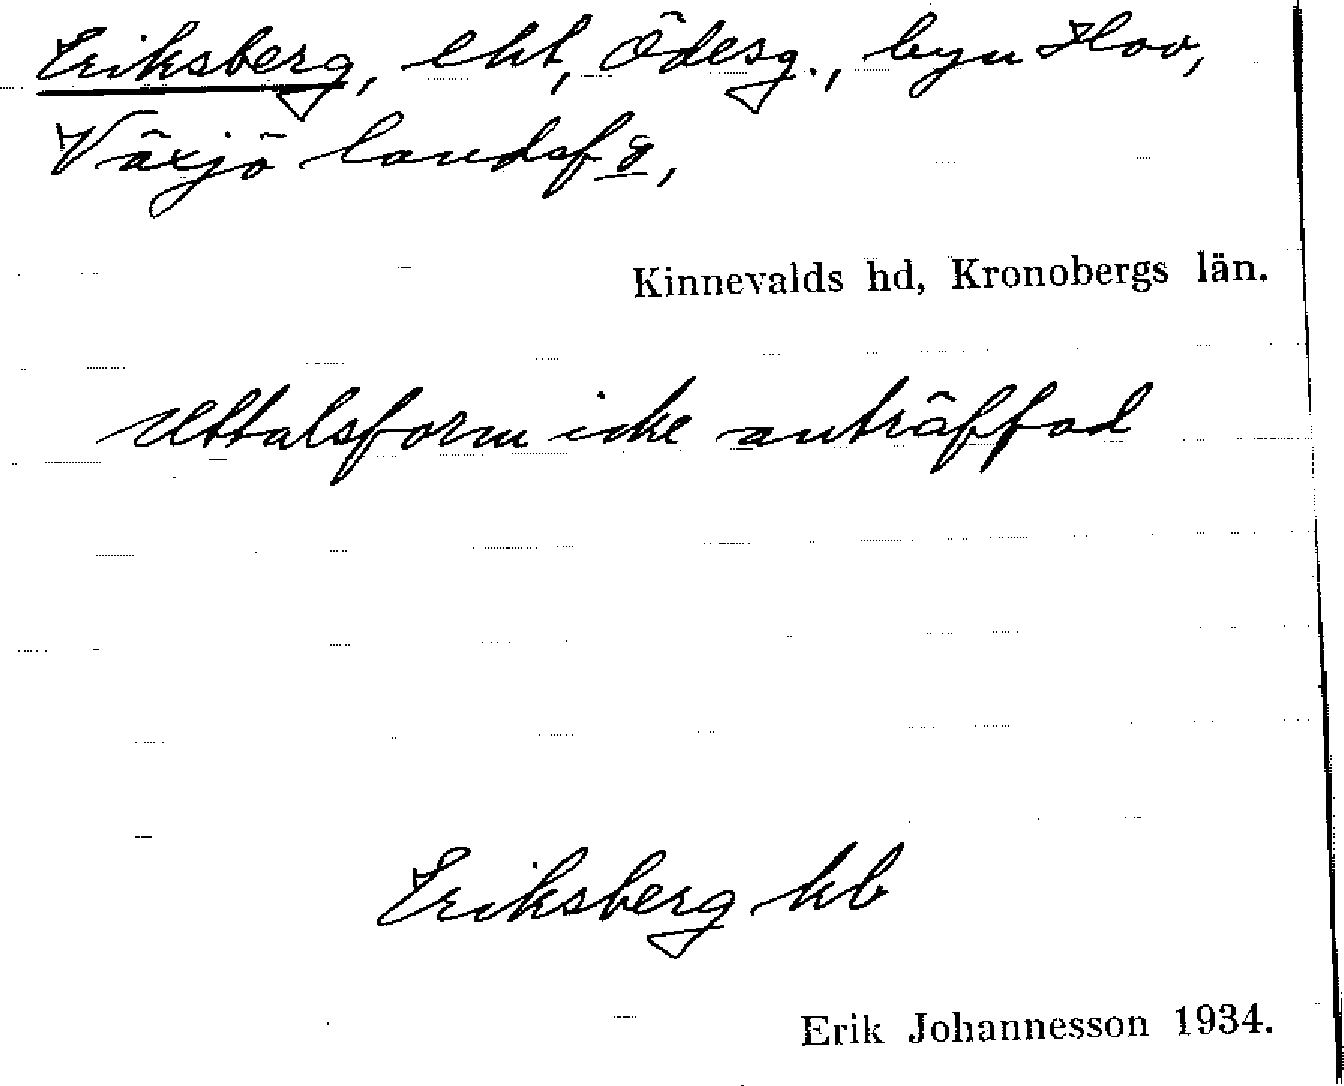 Eriksberg, eht, Ödesg., byn Hov,
Växjö landsfg,
Kinnevalds hd, Kronobergs län.
Uttalsform icke anträffad
Eriksberg kb
Erik Johannesson 1934.